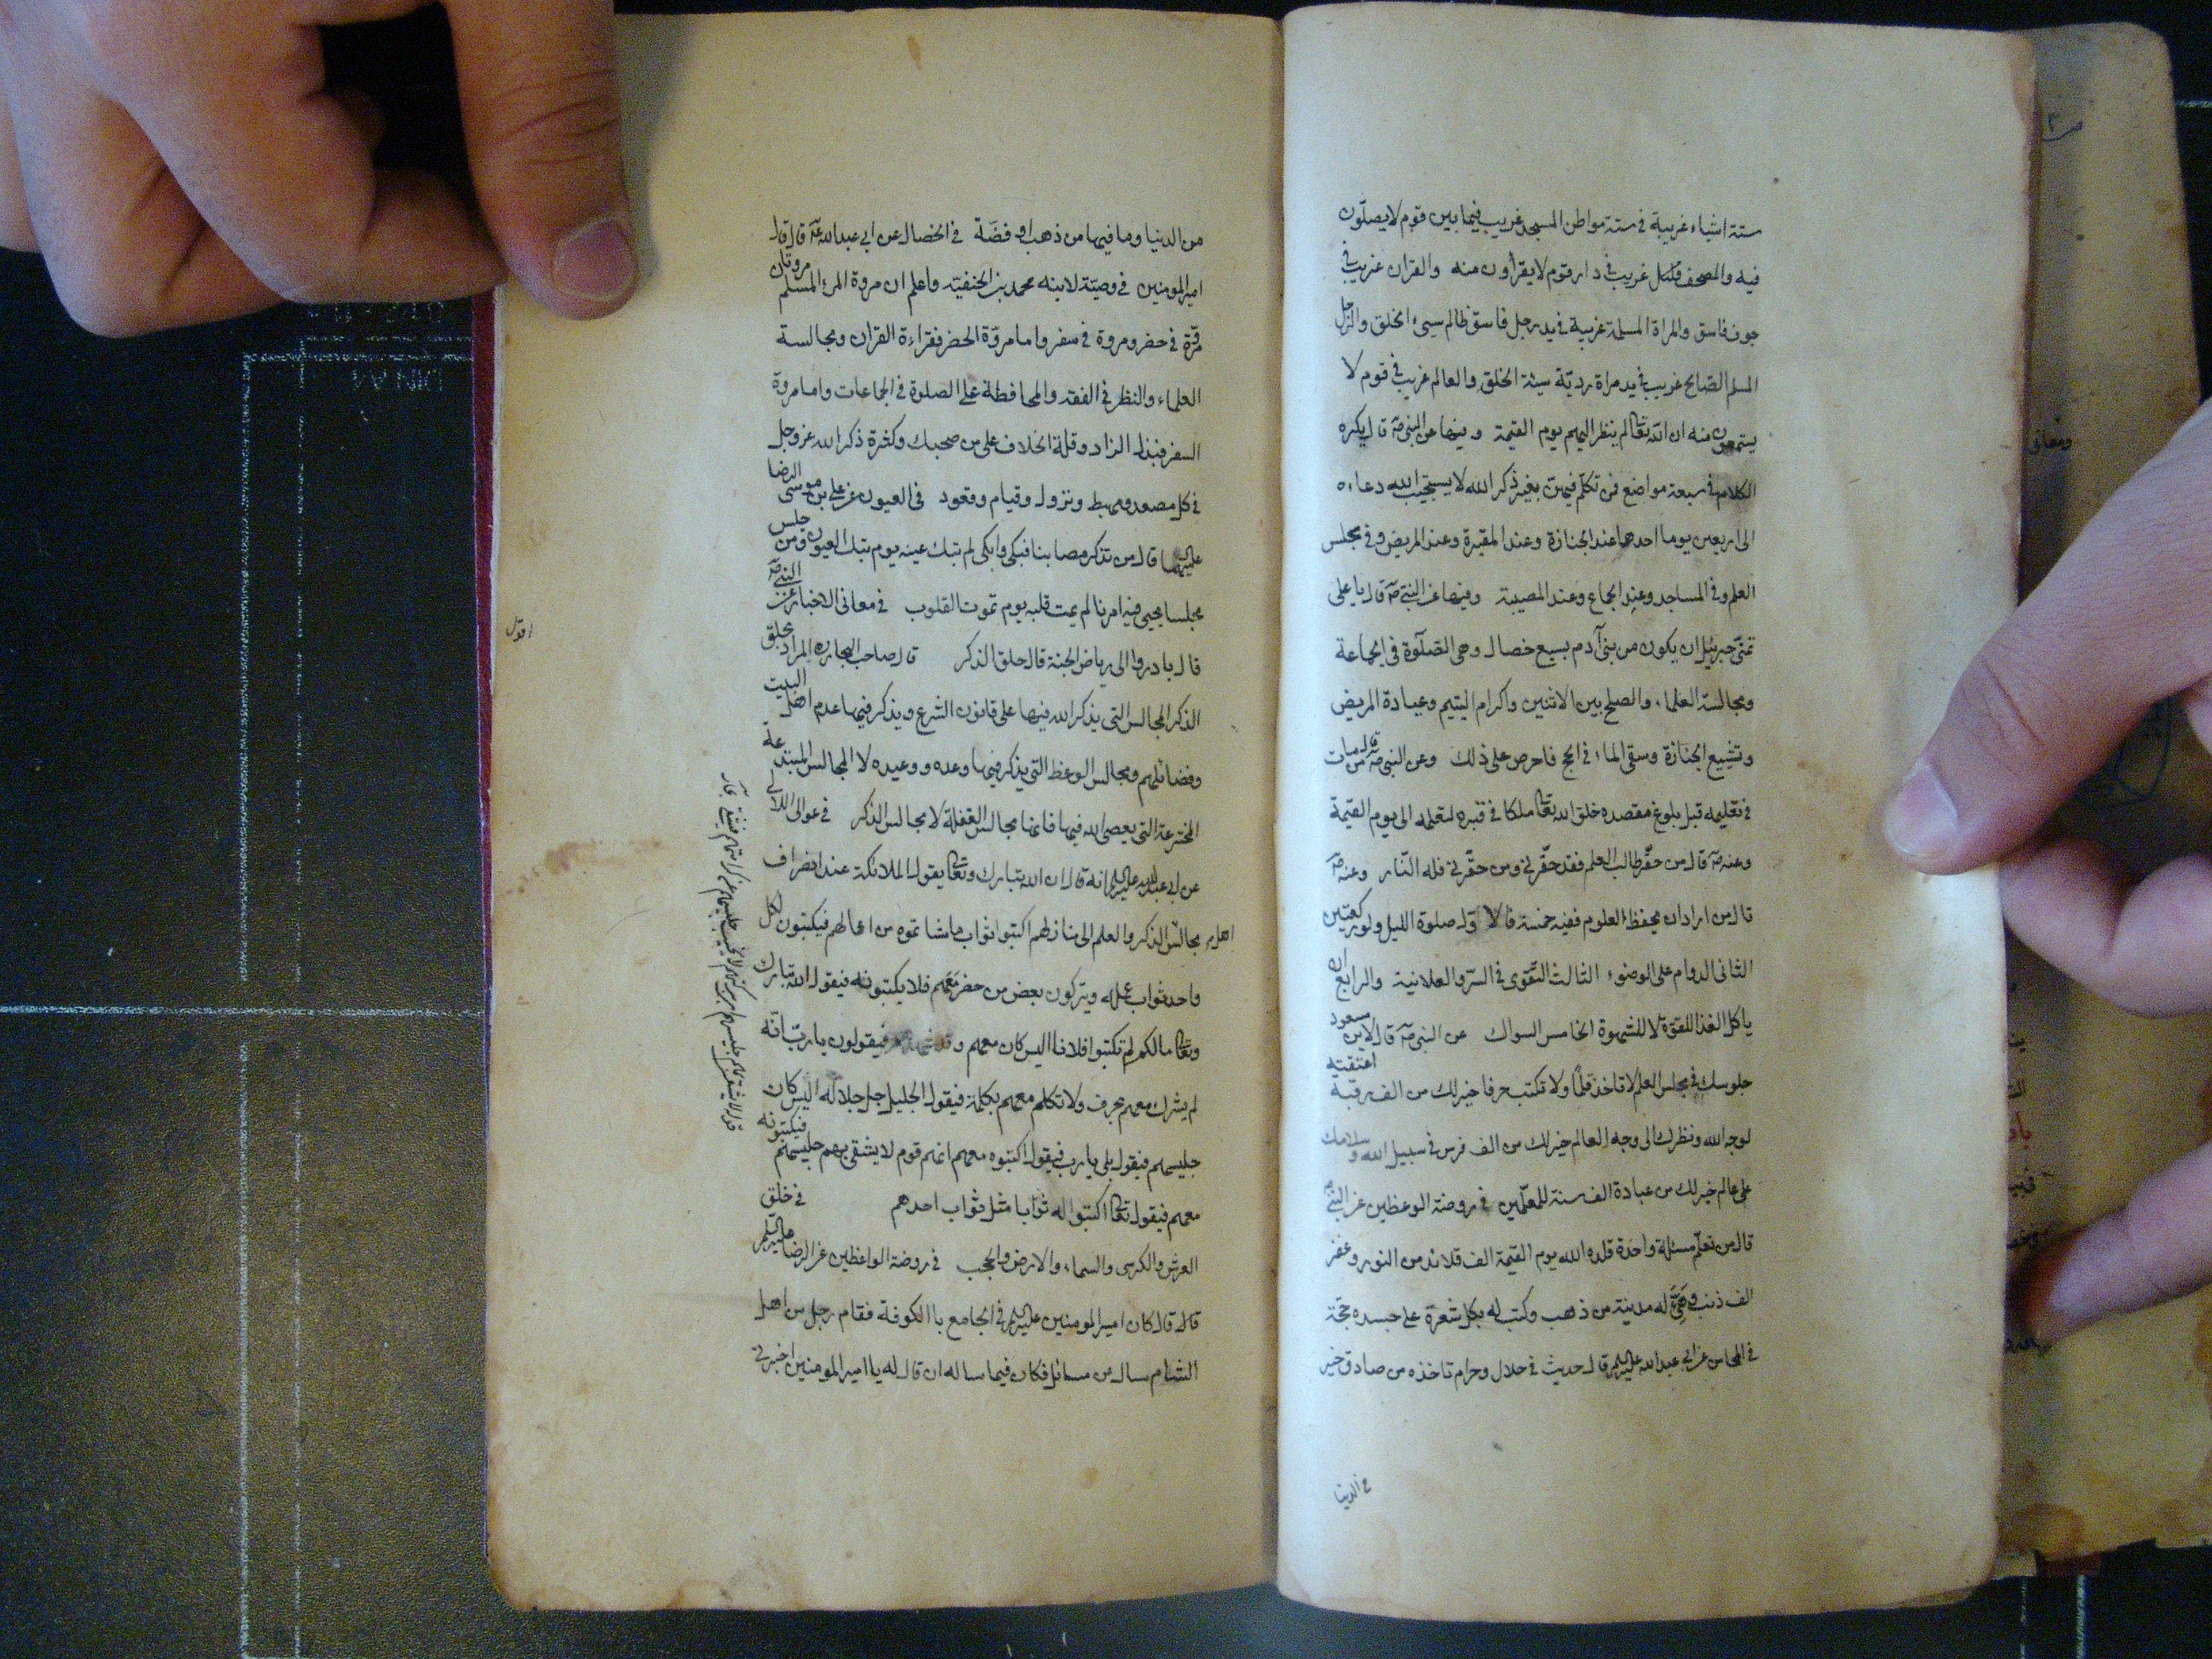 ستة اشياء غريبة في ستة مواطن المسجد غريب فيما بين قوم لا يصلّون
فيه والمصحف غريب في دار قوم لا يقرأون منه والقران غريب في
جوف فاسق والمراة المسلمة غريبة في يد رجل فاسق ظالم سيئ الخلق والرجل
المسلم الصّالح غريب في يد مراة رديّة سيئة الخلق والعالم غريب في قوم لا
يستمعون منه ان الله تعالى لم ينظر اليهم يوم القيمة وفيها عن النبي ص قال يكره
الكلام في سبعة مواضع فمن تكلّم فيهن بغير ذكر الله لا يستجيب الله دعاءه
الى اربعين يوما احدها عند الجنازة وعند المقبرة وعند المريض وفي مجلس
العلم وفي المساجد وعند الجماع وعند المصيبة وفيها عن النبي ص قال يا علي
تمنّى جبرئيل ان يكون من بني آدم بسبع خصال وهي الصّلوة في الجماعة
ومجالسة العلماء والصلح بين الاثنين واكرام اليتيم وعيادة المريض
وتشييع الجنازة وسقي الماء في الحج فاحرص على ذلك وعن النبي ص قال من مات
في تعليمه قبل بلوغ مقصده خلق الله تعالى ملكا في قبره لتعليمه الى يوم القيمة
وعنه ص قال من حقّر طالب العلم فقد حقّرني ومن حقّرني فله النّار وعنه ص
قال من اراد ان يحفظ العلوم ففيه خمسة فالاول صلوة الليل ولو ركعتين
الثاني الدوام على الوضوء الثالث التّقوى في السرّ والعلانية والرابع ان
ياكل الغذا للقوّة لا للشهوة الخامس السواك عن النبي ص قال لابن مسعود
جلوسك في مجلس العلم لا تاخذ قلمًا ولا تكتب حرفا خير لك من الف رقبة اعتقته
لوجه الله ونظرك الى وجه العالم خير لك من الف فرس في سبيل الله وسلامك
على عالم خير لك من عبادة الف سنة للمعلّمين في روضة الوعظين عن النبي ص
قال من تعلّم مسئلة واحدة قلده الله يوم القيمة الف قلائد من النور وغفر
الف ذنب وهيّئ له مدينة من ذهب وكتب له بكل شعرة على جسده حجّة
في المحاسن عن ابي عبد الله عليه السلم قال حديث في حلال وحرام تاخذه من صادق خير
في الدنيا
من الدنيا وما فيها من ذهب او فضّة في الخصال عن ابي عبد الله ع قال قال
امير المومنين في وصيّة لابنه محمد بن الحنفيّة واعلم ان مروة المرء المسلم مروتان
مروّة في حضر ومروة في سفر واما مروّة الحضر فقراءة القران ومجالسة
العلماء والنظر في الفقه والمحافظة على الصلوة في الجماعات واما مروة
السفر فبذل الزاد وقلة الخلاف على من صحبك وكثرة ذكر الله عز وجل
في كل مصعد ومهبط ونزول وقيام وقعود في العيون عن علي بن موسى الرضا
عليهما قال من تذكر مصابنا فبكى وابكى لم تبك عينه يوم تبك العيون ومن جلس
مجلسا يحيى فيه امرنا لم يمت قلبه يوم تموت القلوب في معاني الاخبار عن النبي ص
قال بادروا الى رياض الجنة قال حلق الذكر قال صاحب البحار المراد بحلق
اقول
الذكر المجالس التي يذكر الله فيها على قانون الشرع ويذكر فيها علم اهل البيت
وفضائلهم ومجالس الوعظ التي يذكر فيها وعده ووعيده لا المجالس المبتدعة
المخترعة التي يعصى الله فيها فانها مجالس الغفلة لا مجالس الذكر في عوالى اللالى
عن ابي عبد الله عليه السلم انه قال ان الله تبارك وتعالى يقول لملائكته عند انصراف
اهل مجالس الذكر والعلم الى منازلهم اكتبوا ثواب ما شاهدتموه من اعمالهم فيكتبون لكل
واحد ثواب عمله ويتركون بعض من حضر معهم فلا يكتبونه فيقول الله تبارك
وتعالى ما لكم لم تكتبوا فلانا اليس كان معهم وقد شهدهم فيقولون يا رب انه
لم يشرك معهم بحرف ولا تكلم معهم بكلمة فيقول الجليل جل جلاله اليس كان
جليسهم فيقول بلى يا رب فيقول اكتبوه معهم انهم قوم لا يشقى بهم جليسهم فيكتبونه
معهم فيقول تعالى اكتبوا له ثوابا مثل ثواب احدهم في خلق
العرش والكرسى والسماء والارض والحجب في روضة الواعظين عن الرضا عليه السلم
قال قال كان امير المومنين عليه السلم في الجامع بالكوفة فقام رجل من اهل
الشام سال من مسائل فكان فيما ساله ان قال له يا امير المومنين اخبرني